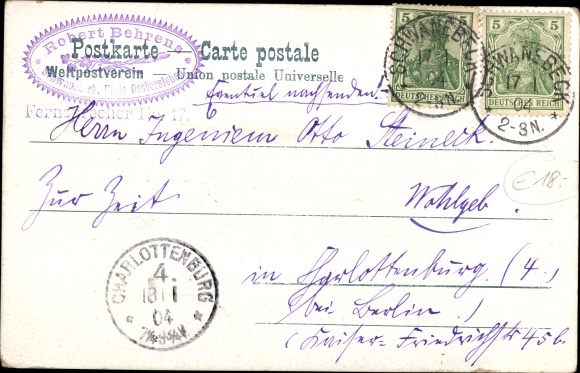 Robert Behrens
Postkarte — Carte postale
Weltpostverein — Union postale Universelle
Schwanebeck, Kreis Oschersleben
Fernsprecher No. 17.
Eventuel nachsenden!
Herrn Ingenieur Otto Steineck
Zur Zeit Wohlgeb.
in Charlottenburg. (4,)
(bei Berlin.)
(Kaiser-Friedrichstr 45 b.
5 5
DEUTSCHES REICH
5 5
DEUTSCHES REICH
SCHWANEBECK
17
04
2-3N.
SCHWANEBECK
17
04
2-3N.
€ 18.-
CHARLOTTENBURG
4.
18 1
04